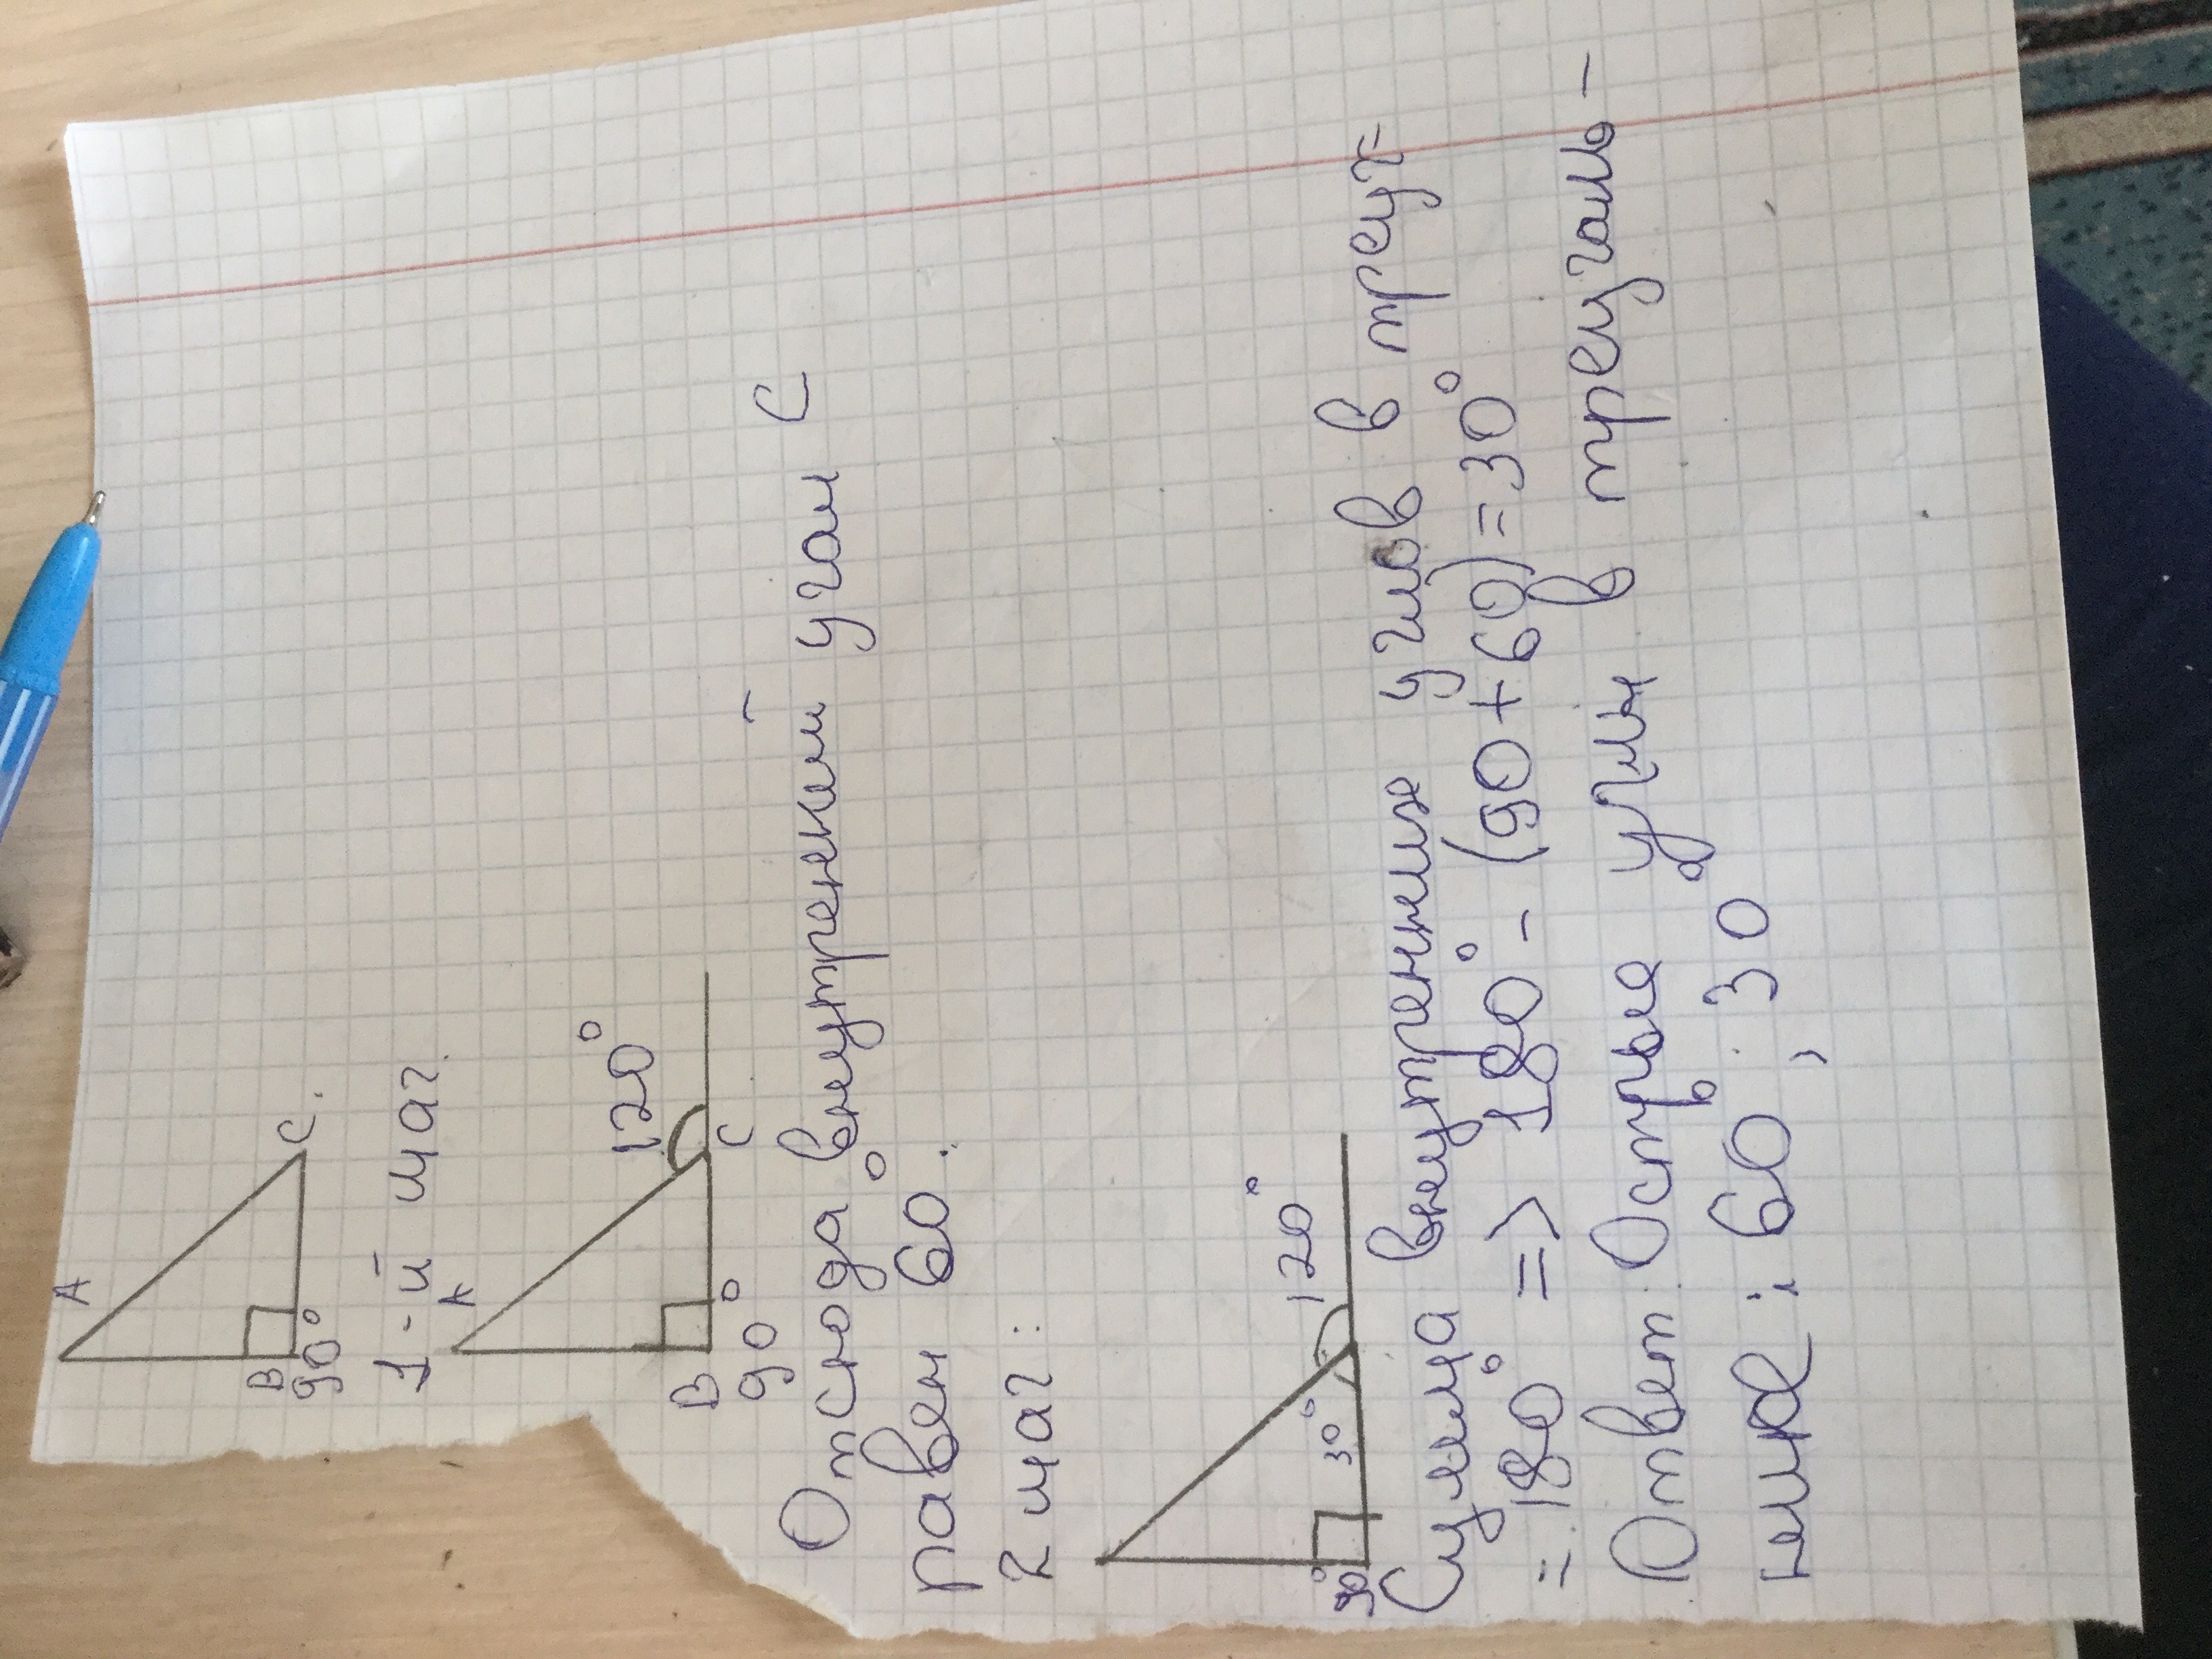 A
B
C.
90°
1-й шаг.
A
120°
B
C
90°
Отсюда внутрений угол C
равен 60°.
2 шаг:
120°
30°
90°
Сумма внутренних углов в треуг=
= 180° => 180° - (90+60)=30°
Ответ: Острые углы в треуголь-
нике: 60°, 30°